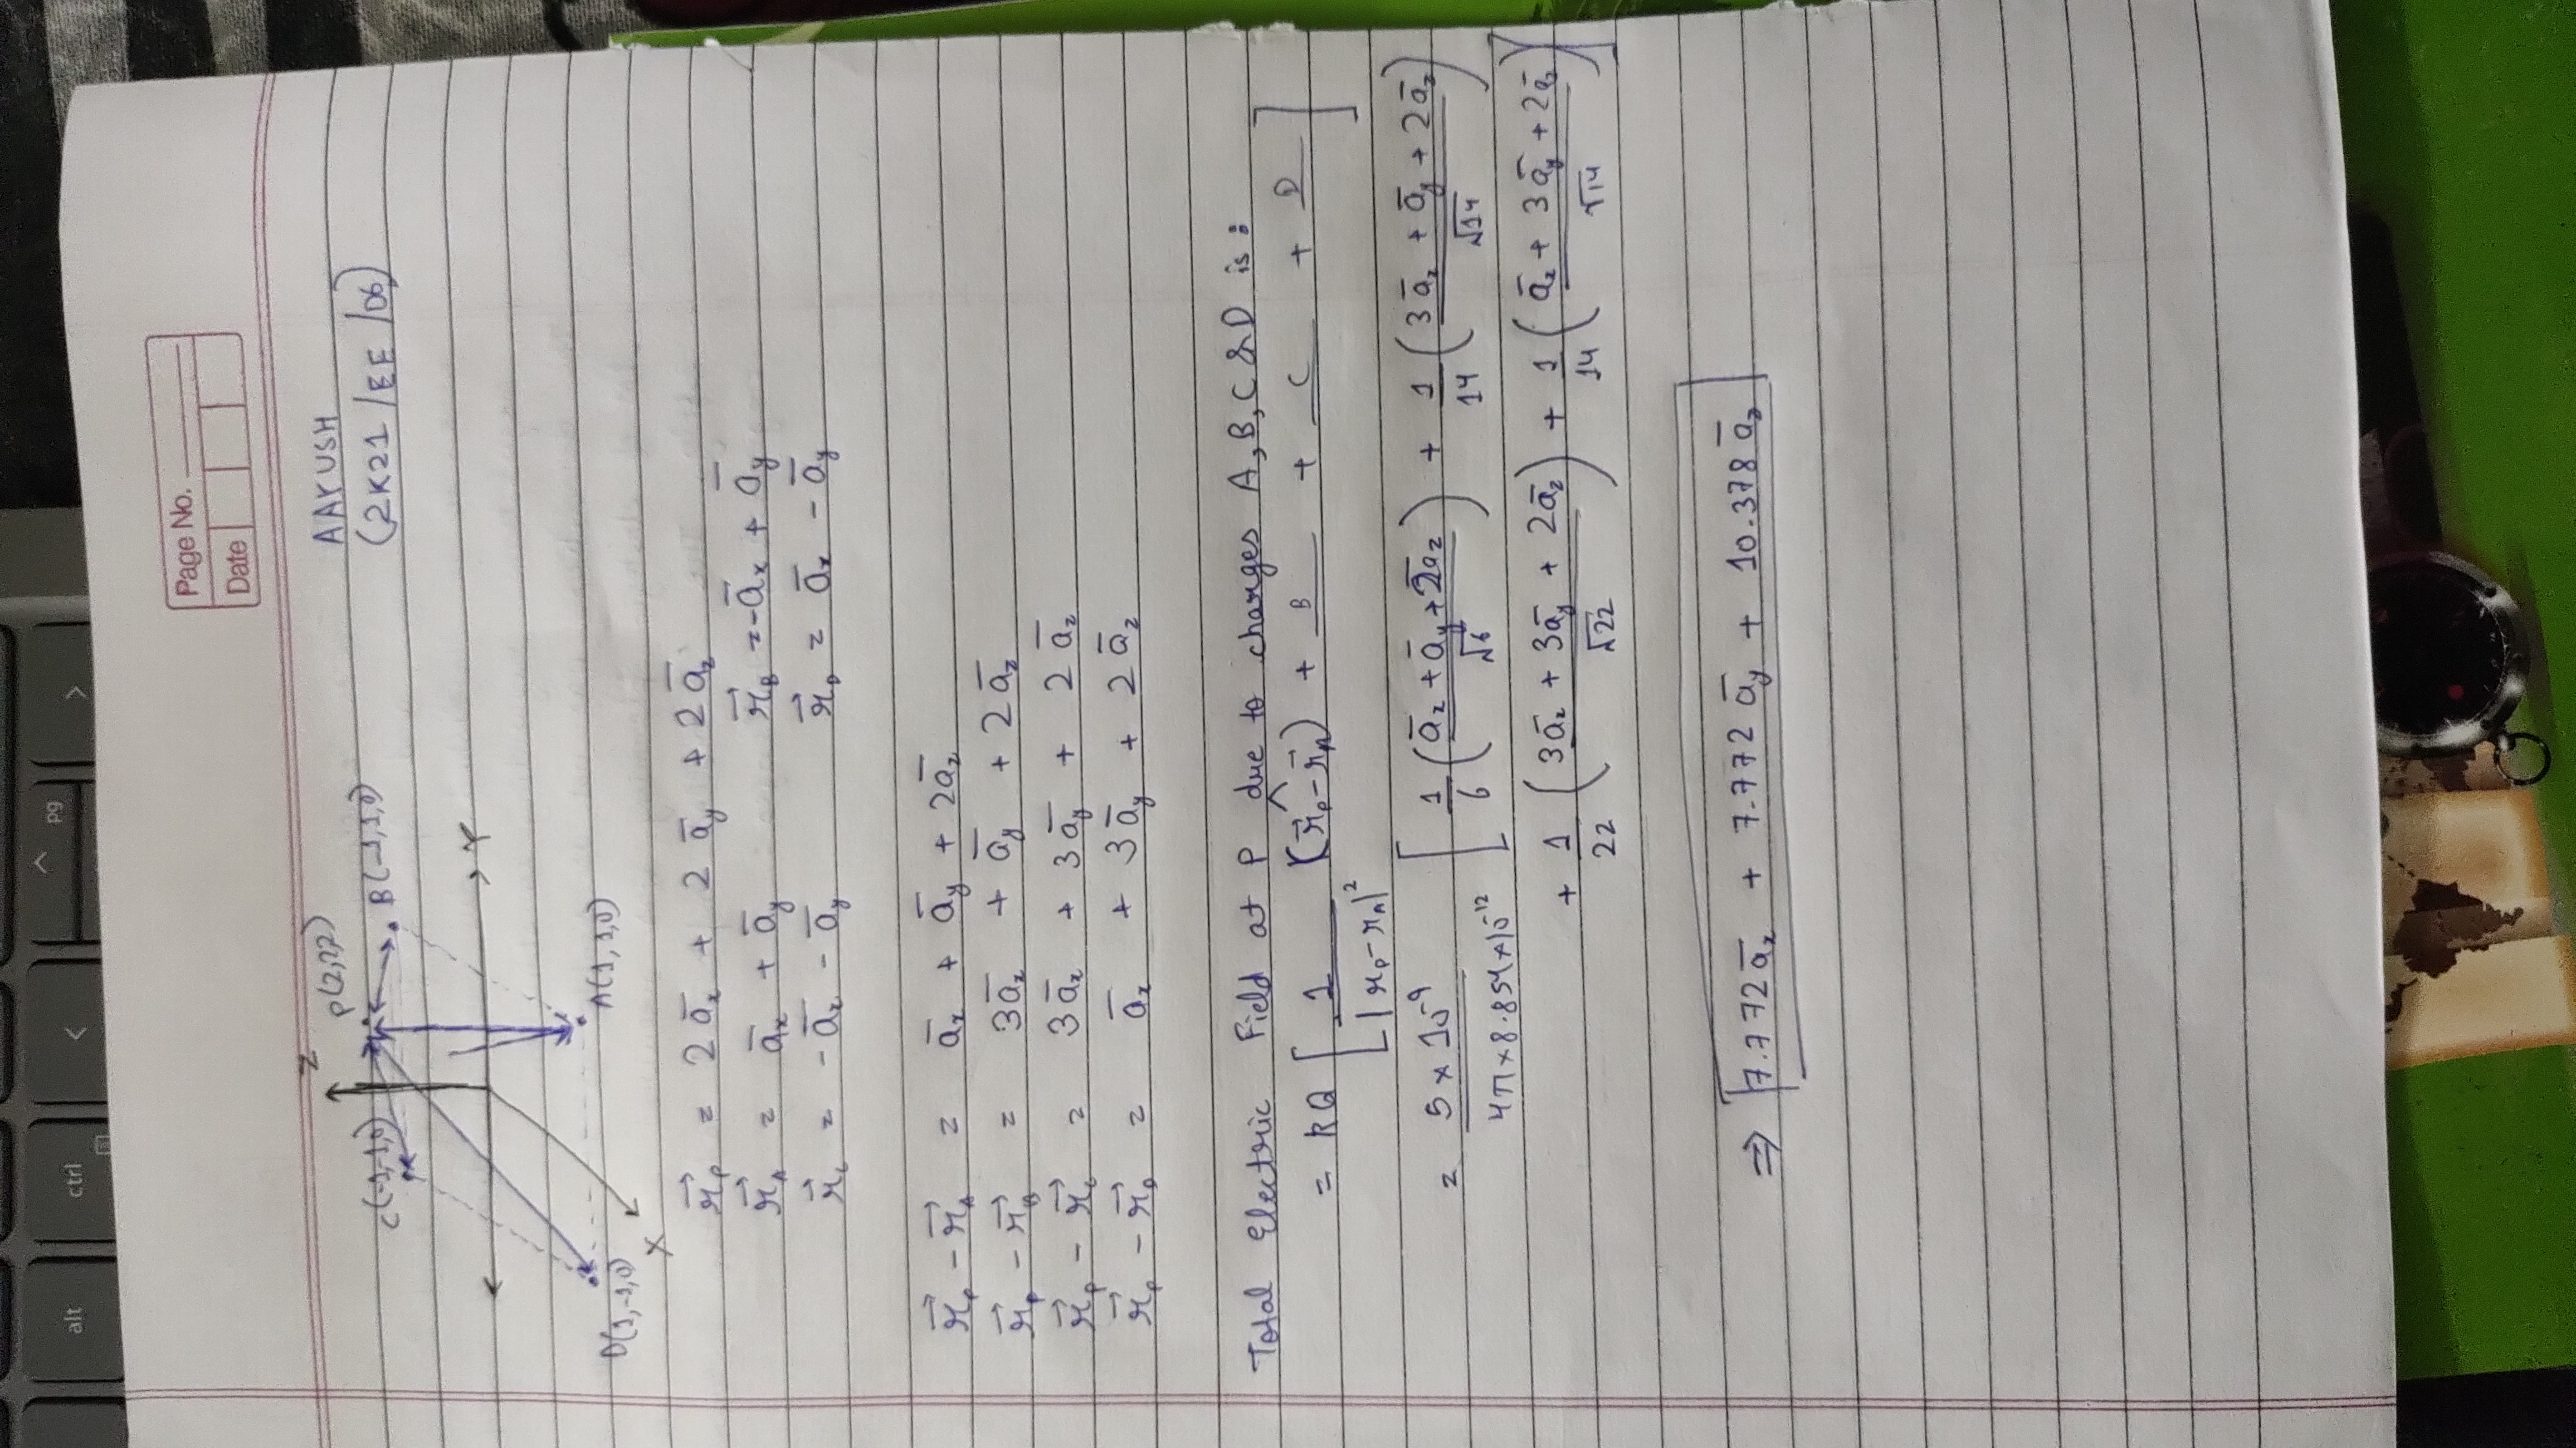 alt ctrl < ^ pg >
Page No.
Date
AAYUSH
(2K21/EE/06)
Z
P(2,2,2)
C(-1,-1,0)
B(-1,1,0)
Y
D(1,-1,0)
A(1,1,0)
X
r⃗_P = 2 ā_x + 2 ā_y + 2 ā_z
r⃗_A = ā_x + ā_y r⃗_B = -ā_x + ā_y
r⃗_C = -ā_x - ā_y r⃗_D = ā_x - ā_y
r⃗_P - r⃗_A = ā_x + ā_y + 2ā_z
r⃗_P - r⃗_B = 3ā_x + ā_y + 2ā_z
r⃗_P - r⃗_C = 3ā_x + 3ā_y + 2ā_z
r⃗_P - r⃗_D = ā_x + 3ā_y + 2ā_z
Total Electric Field at P due to charges A, B, C & D is:
= kQ [ 1/|r_P - r_A|² (r⃗_P - r⃗_A)^ + B + C + D ]
= 5 × 10⁻⁹ / 4π × 8.854 × 10⁻¹² [ 1/6 ( ā_x + ā_y + 2ā_z / √6 ) + 1/14 ( 3ā_x + ā_y + 2ā_z / √14 )
+ 1/22 ( 3ā_x + 3ā_y + 2ā_z / √22 ) + 1/14 ( ā_x + 3ā_y + 2ā_z / √14 ) ]
⇒ 7.772 ā_x + 7.772 ā_y + 10.378 ā_z